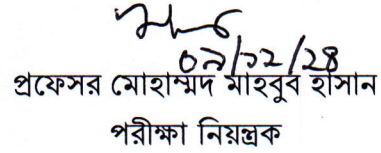 ০৯/১২/২৪
প্রফেসর মোহাম্মদ মাহবুব হাসান
পরীক্ষা নিয়ন্ত্রক